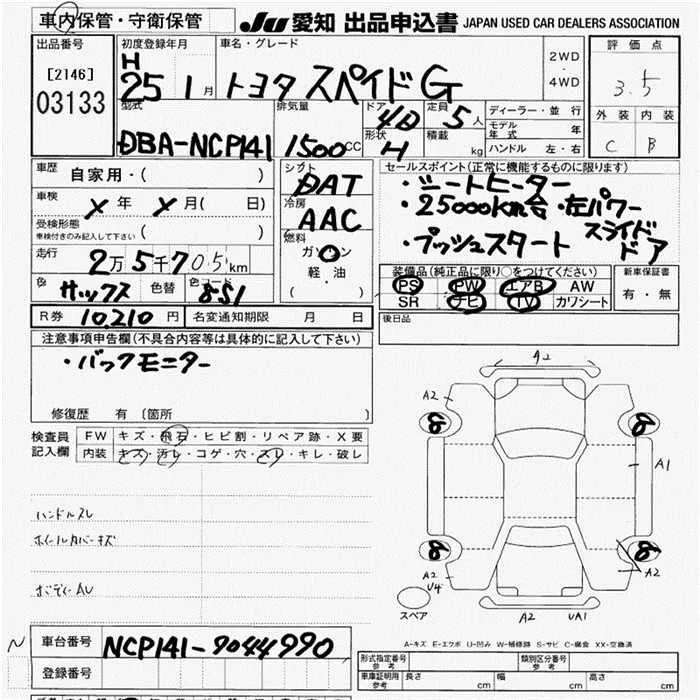 車内保管・守衛保管
JU 愛知 出品申込書 JAPAN USED CAR DEALERS ASSOCIATION
出品番号
[2146]
03133
初度登録年月
H 25 1 月
車名・グレード
トヨタ スペイド G
2WD
・
4WD
評価点
3.5
外装 内装
C B
型式
DBA-NCP141
排気量
1500 CC
ドア
4D
形状
H
定員
5人
積載
kg
ディーラー・並行
モデル年式 年
ハンドル 左・右
車歴
自家用・( )
車検
X 年 X 月( 日)
受検形態
車検付きのみ記入して下さい ( )
走行
2万5千705km
色
サックス
色替
色コード
8S1
シフト
DAT
冷房
AAC
燃料
ガソリン
軽・油
( )
セールスポイント(正常に機能するものに限ります)
・シートヒーター
・25000km台・左パワースライドドア
・プッシュスタート
装備品(純正品に限り○をつけてください)
PS PW エアB AW
SR ナビ TV カワシート
新車保証書
有・無
R券 10,210 円
名変通知期限 月 日
後日品
注意事項申告欄(不具合内容等は具体的に記入して下さい)
・バックモニター
修復歴 有 〔箇所 〕
検査員記入欄
FW キズ・飛石・ヒビ割・リペア跡・X要
内装 キズ・汚レ・コゲ・穴・スレ・キレ・破レ
ハンドルスレ
ホイールカバーキズ
ボディーAU
A2
A2
8
8
A1
8
8
A2
U4
A2
スペア
A2
UA1
A-キズ E-エクボ U-凹み W-補修跡 S-サビ C-腐食 XX-交換済
N
車台番号
NCP141-9044990
登録番号
形式指定番号
参考
類別区分番号
参考
車庫証明用
参考
長さ cm
幅 cm
高さ cm